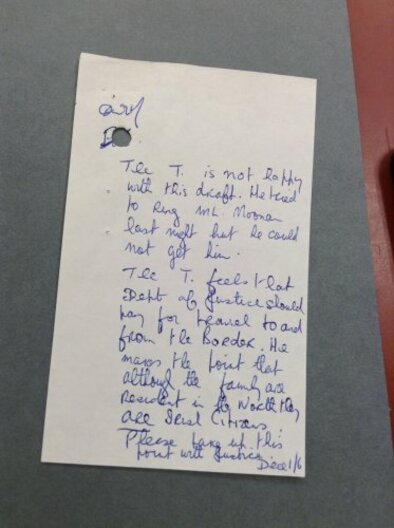 The T. is not happy
with this draft. He tried
to ring Mr. Noonan
last night but he could
not get him.
The T. feels that
Dept of Justice should
pay for travel to and
from the Border. He
makes the point that
although the family are
Resident in the North they
are Irish Citizens
Please take up this
point with Justice